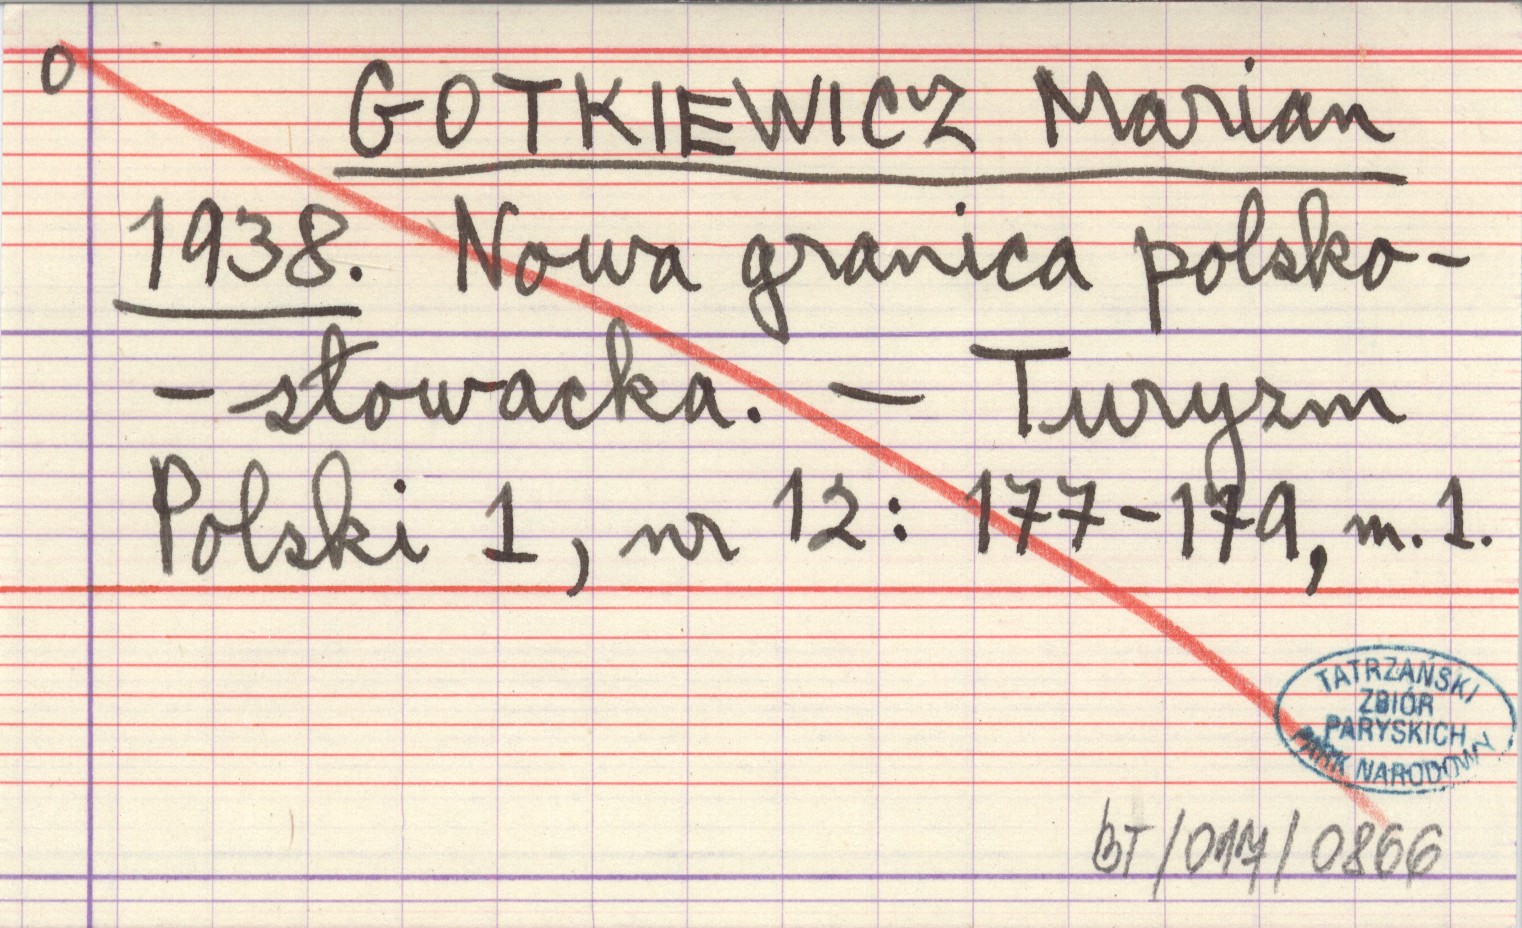 O
GOTKIEWICZ Marian
1938. Nowa granica polsko-
-słowacka. – Turyzm
Polski 1, nr 12: 177-179, m. 1.
TATRZAŃSKI
ZBIÓR
PARYSKICH
PARK NARODOWY
BT/017/0866